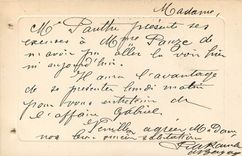 Madame,
Mr présente ses
excuses à Mme Pauze de
n'avoir pu aller la voir hier
ni aujourd'hui.
Il aura l'avantage
de se présenter lundi matin
pour vous entretenir de
l'affaire Gabriel.
Veuillez agréer M. Dam
nos bien sincères salutations